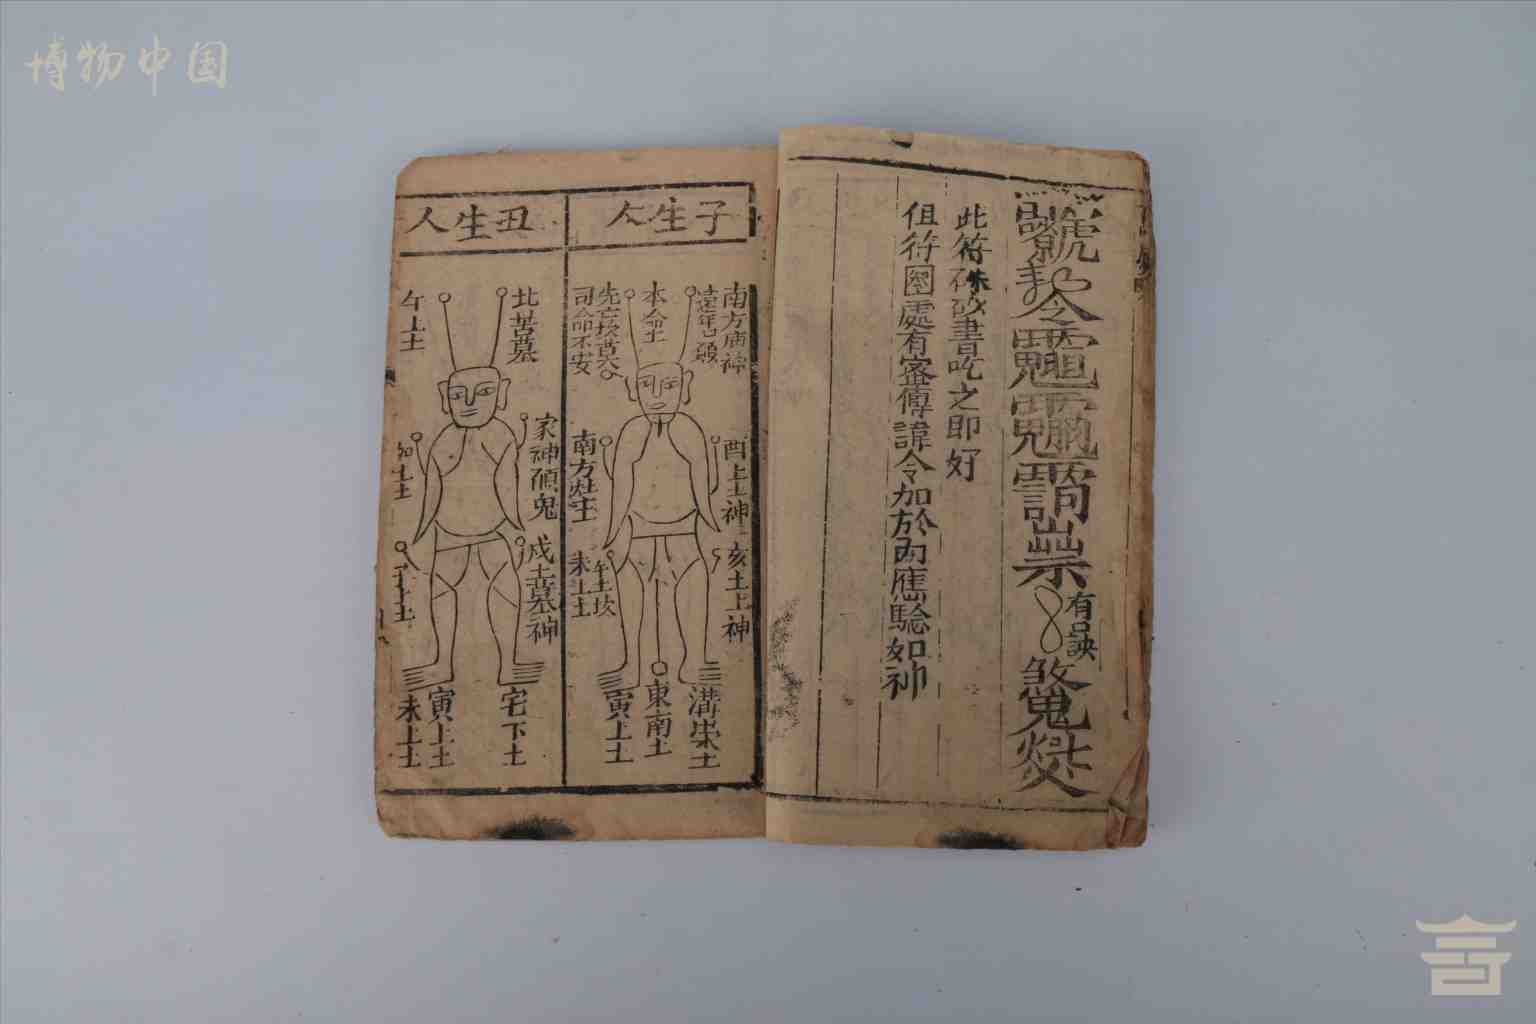 博物中国
有訣
此符硃砂書吃之即好
但符圖處有密傳諱令加於內應驗如神
子生人
南方廟神
本命土
先亡坟墓
司命不安
酉上土神
南方灶土
亥土上神
午土坟
未上土
溝崇土
東南土
寅上土
丑生人
北苦墓
午上土
家神傾鬼
戌土墓神
宅下土
寅上土
未上土